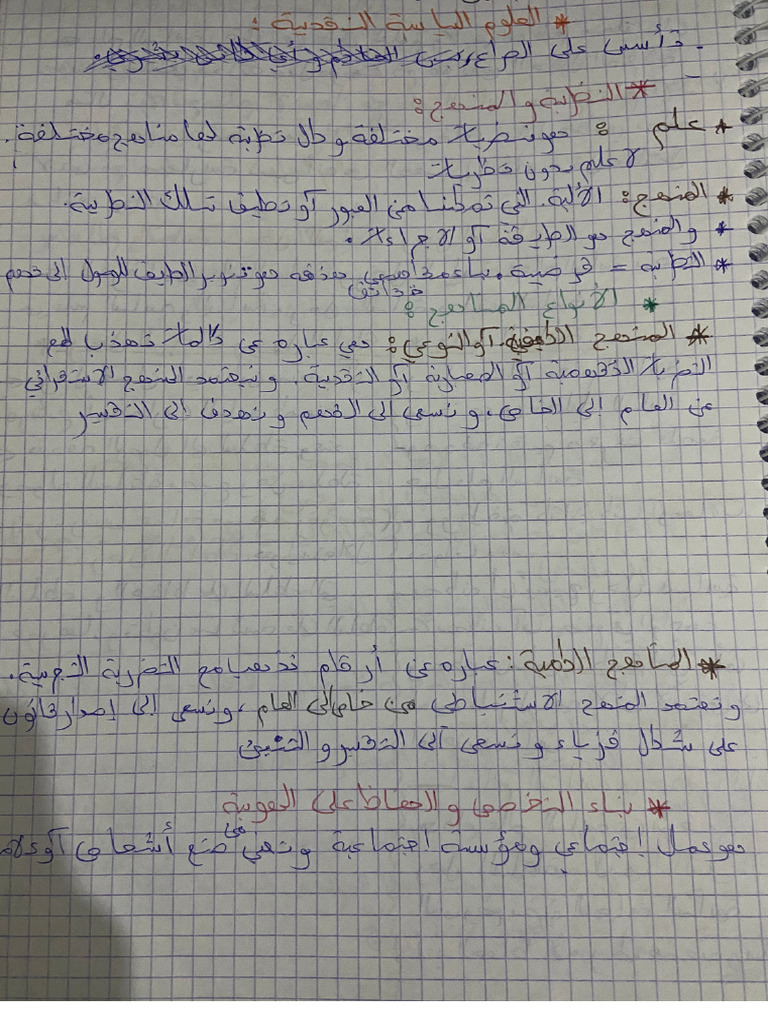 * العلوم السياسة النقدية :
- تأسس على الصراع
* النظرية والمنهج :
* علم : هو نضريات مختلفة وكل نظرية لها مناهج مختلفة.
لا علم بدون نظريات
* المنهج : الألية التي تمكننا من العبور أو تطبيق تلك النظرية.
* والمنهج هو الطريقة أو الاجراءات.
* النظرية = فرضية هدفه هو تنوير الطريق للوصول الى فهم
* الأنواع المناهج :
* المنهج الكيفية أو النوعي : هي عبارة عن كلمات تذهب مع
النضريات التفهمية أو المعيارية أو النقدية، ونعتمد المنهج الاستقرائي
من العام إلى الخاص، ونسعى إلى الفهم ونهدف إلى التفسير
* المناهج الكمية : عبارة عن أرقام تذهب مع النضرية الوضعية.
ونعتمد المنهج الاستنباطي من خاص إلى العام، ونسعى إلى إصدار قانون
على شكل فزياء ونسعى إلى التفسير و
* بناء الشخصي والحفاظ على الهوية
هو عمل إجتماعي ومؤسسة اجتماعية ونعني من صنع أشخاص أو